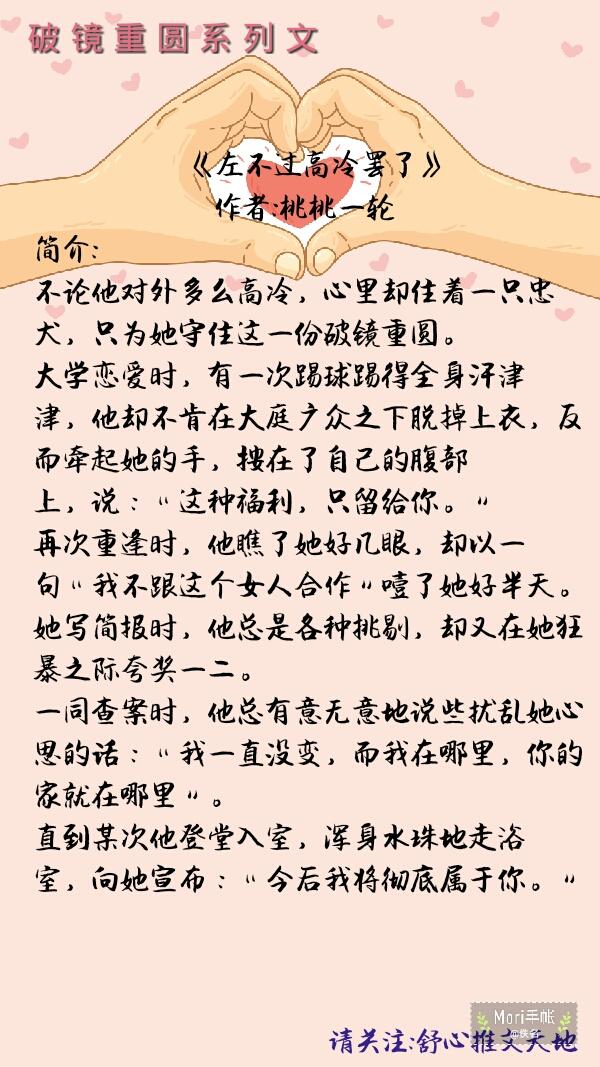 破镜重圆系列文
《左不过高冷罢了》
作者:桃桃一轮
简介:
不论他对外多么高冷，心里却住着一只忠
犬，只为她守住这一份破镜重圆。
大学恋爱时，有一次踢球踢得全身汗津
津，他却不肯在大庭广众之下脱掉上衣，反
而牵起她的手，搂在了自己的腹部
上，说：“这种福利，只留给你。”
再次重逢时，他瞧了她好几眼，却以一
句“我不跟这个女人合作”噎了她好半天。
她写简报时，他总是各种挑剔，却又在她狂
暴之际夸奖一二。
一同查案时，他总有意无意地说些扰乱她心
思的话：“我一直没变，而我在哪里，你的
家就在哪里”。
直到某次他登堂入室，浑身水珠地走浴
室，向她宣布：“今后我将彻底属于你。”
Mori手帐
@佚名
请关注:舒心推文天地